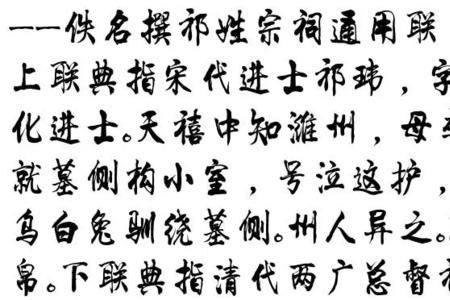 ——佚名撰祁姓宗祠通用联
上联典指宋代进士祁玮，字
化进士。天禧中知潍州，母
就墓侧构小室，号泣这护，
乌白兔驯绕墓侧。州人异之。
帛。下联典指清代两广总督